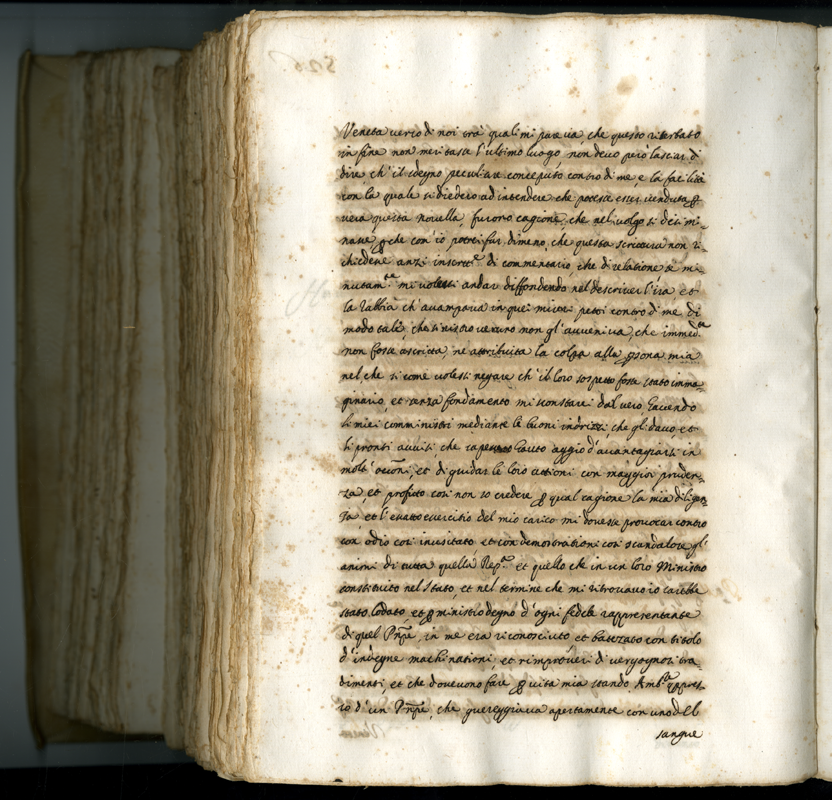 Veneta verso di noi trà quali mi pareva, che questo riserbato
in fine non meritasse l'ultimo luogo, non devo però lasciar di
dire ch'il sdegno peculiare conceputo contro di me, e la facilità
con la quale si diedero ad intendere che potesse esser venduta p
vera questa novella, furono cagione, che nel volgo si dissimi-
nasse, che con'io potrei far dimeno, che questa scrittura non ri-
chiedesse anzi di commentario, che di relatione se mi-
nutam.te mi volessi andar diffondendo nel descriver l'ira et
la rabbia ch'avampava in quei petti contro di me di
modo tale, che sinistro veruno non gl'avveniva, che immed.ta
non fosse ascritta, ne attribuita la colpa alla psona mia
nel che si come volessi negare ch'il loro sospetto fosse stato imma-
ginario, et senza fondamento mi scostarei dal vero havendo
li miei comministri mediante le buoni indrizzi, che gli davo, et
li pronti avvisi, che havuto aggio d'avantagiarsi in
molt'occ.oni, et di guidar le loro attioni con maggior pruden-
za, et profitto così non so credere p qual cagione la mia diligen-
za, et l'esatto esercitio del mio carico mi dovesse provocar contro
con odio così inusitato et con demostrationi così scandalose gl'
animi di tutta quella Rep.ca et quello che in un loro Ministro
constituito nel stato, et nel termine che mi ritrovavo io sarebbe
stato lodato, et p ministro degno d'ogni fedele rappresentante
di quel Pnpe, in me era riconosciuto et battezato con titolo
d'indegne machinationi, et rimproveri di vergognosi tra-
dimenti, et che dovevono fare p vita mia stando Amb.re appres-
so d'un Pnpe, che guereggiava apertamente con uno del
sangue